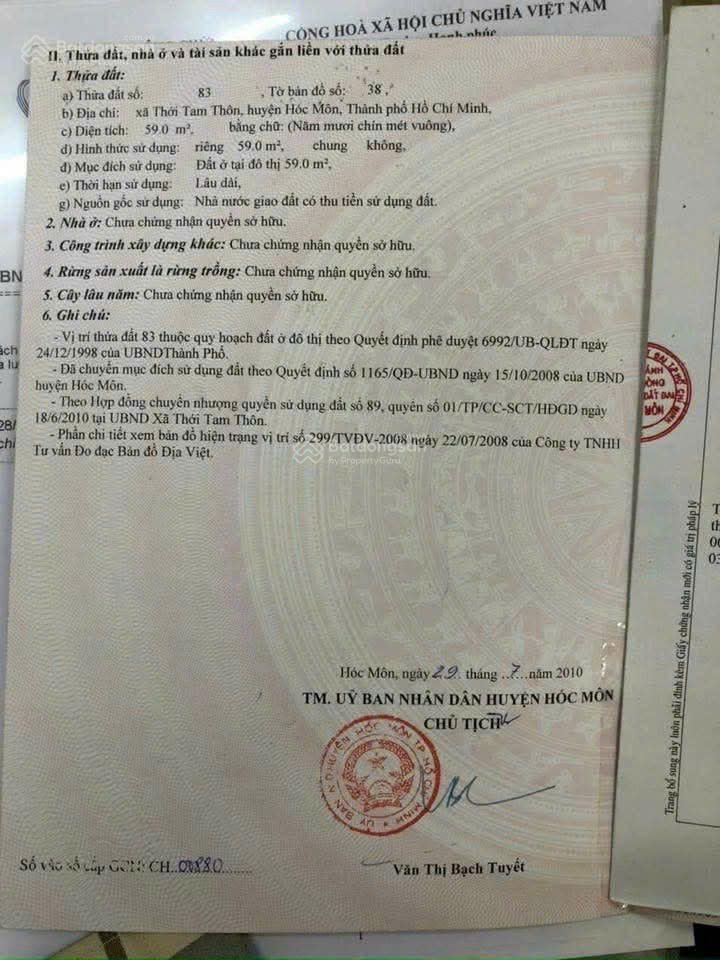 CỘNG HOÀ XÃ HỘI CHỦ NGHĨA VIỆT NAM
Hạnh phúc
II. Thửa đất, nhà ở và tài sản khác gắn liền với thửa đất
1. Thửa đất:
a) Thửa đất số: 83 , Tờ bản đồ số: 38 ,
b) Địa chỉ: xã Thới Tam Thôn, huyện Hóc Môn, Thành phố Hồ Chí Minh,
c) Diện tích: 59.0 m², bằng chữ: (Năm mươi chín mét vuông),
d) Hình thức sử dụng: riêng 59.0 m², chung không,
đ) Mục đích sử dụng: Đất ở tại đô thị 59.0 m²,
e) Thời hạn sử dụng: Lâu dài,
g) Nguồn gốc sử dụng: Nhà nước giao đất có thu tiền sử dụng đất.
2. Nhà ở: Chưa chứng nhận quyền sở hữu.
3. Công trình xây dựng khác: Chưa chứng nhận quyền sở hữu.
4. Rừng sản xuất là rừng trồng: Chưa chứng nhận quyền sở hữu.
5. Cây lâu năm: Chưa chứng nhận quyền sở hữu.
6. Ghi chú:
- Vị trí thửa đất 83 thuộc quy hoạch đất ở đô thị theo Quyết định phê duyệt 6992/UB-QLĐT ngày
24/12/1998 của UBNDThành Phố.
- Đã chuyển mục đích sử dụng đất theo Quyết định số 1165/QĐ-UBND ngày 15/10/2008 của UBND
huyện Hóc Môn.
- Theo Hợp đồng chuyển nhượng quyền sử dụng đất số 89, quyển số 01/TP/CC-SCT/HĐGD ngày
18/6/2010 tại UBND Xã Thới Tam Thôn.
- Phần chi tiết xem bản đồ hiện trạng vị trí số 299/TVĐV-2008 ngày 22/07/2008 của Công ty TNHH
Tư vấn Đo đạc Bản đồ Địa Việt.
Batdongsan
by PropertyGuru
Hóc Môn, ngày 29 tháng 7 năm 2010
TM. UỶ BAN NHÂN DÂN HUYỆN HÓC MÔN
CHỦ TỊCH
Ủ Y BAN N.D HUYỆN HÓC MÔN T.P HỒ CHÍ MINH
Văn Thị Bạch Tuyết
Số vào sổ cấp GCN: CH 00880
Trang bổ sung này luôn phải đính kèm Giấy chứng nhận mới có giá trị pháp lý